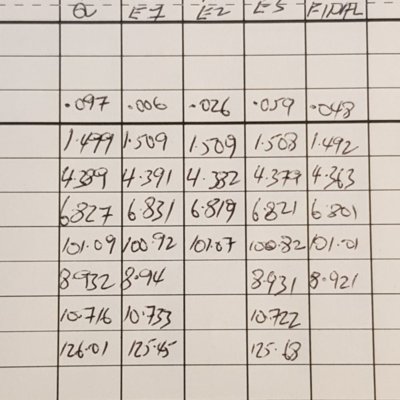 Q E7 E2 E5 FINAL
.097 .006 .026 .059 .048
1.499 1.509 1.509 1.508 1.492
4.389 4.391 4.382 4.379 4.363
6.827 6.831 6.819 6.821 6.801
101.09 100.92 101.07 100.82 101.01
8.932 8.94 8.931 8.921
10.716 10.733 10.722
126.01 125.45 125.68